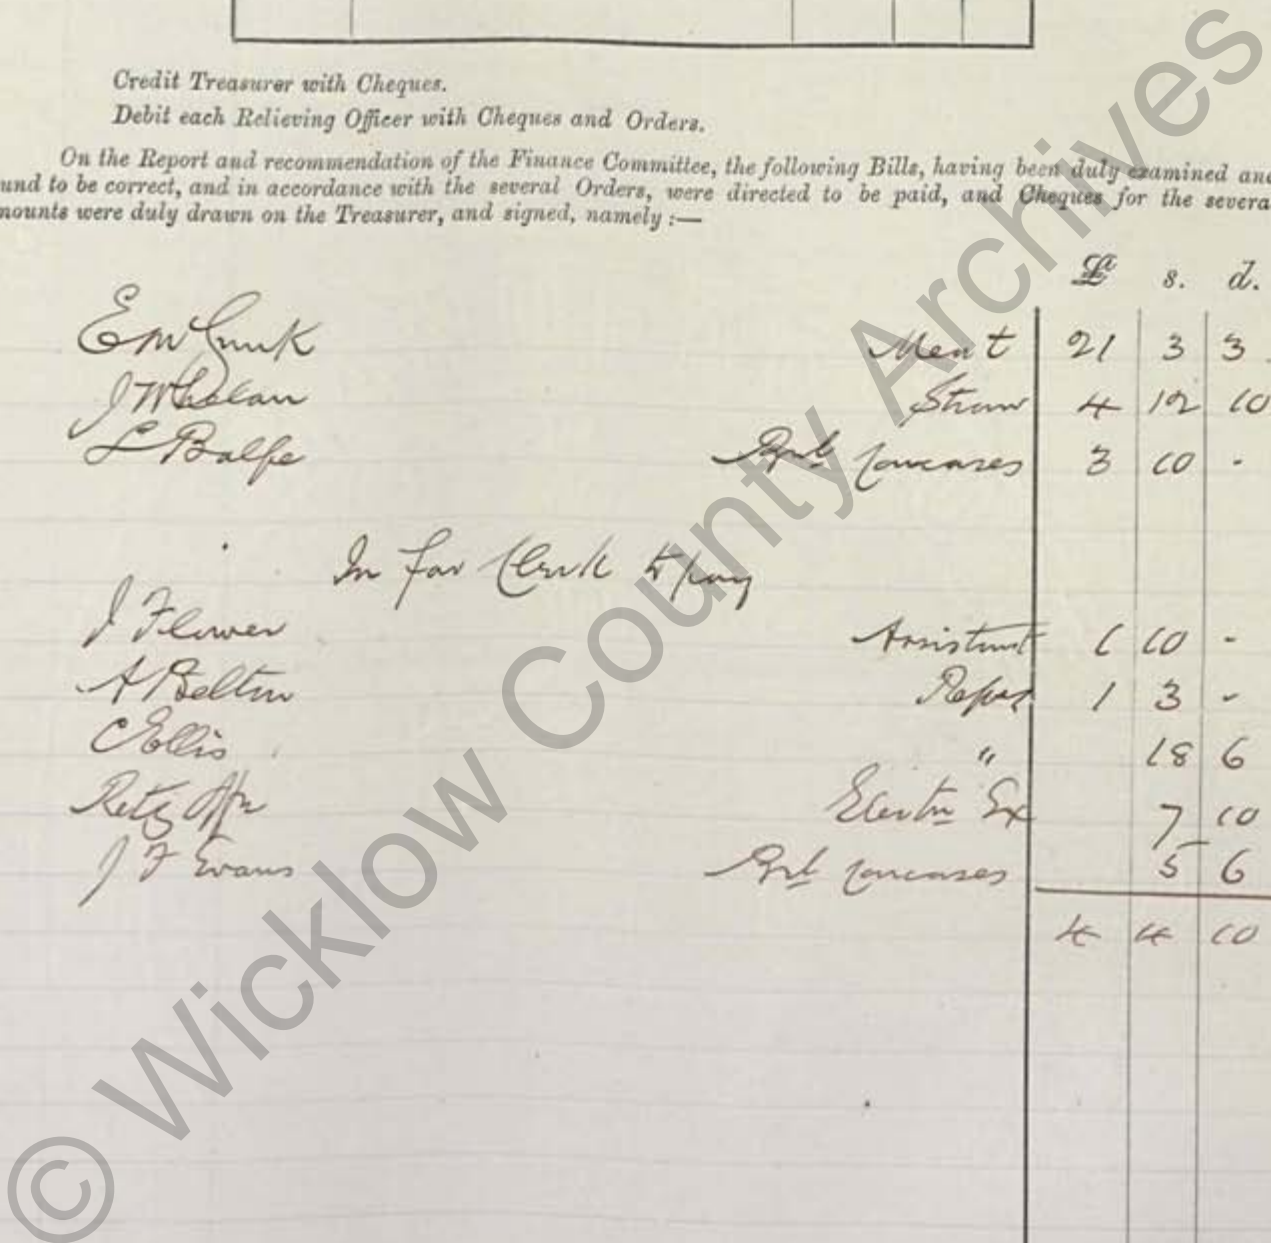 Credit Treasurer with Cheques.
Debit each Relieving Officer with Cheques and Orders.
On the Report and recommendation of the Finance Committee, the following Bills, having been duly examined and
und to be correct, and in accordance with the several Orders, were directed to be paid, and Cheques for the severa
mounts were duly drawn on the Treasurer, and signed, namely :—
£ s. d.
Meat 21 3 3
J Whelan Straw 4 12 10
L Balfe carcases 3 10 -
In fav Clerk to pay
J Flower Assistant 1 10 -
A Belton 1 3 -
C Ellis " 18 6
Electn Ex 7 10
J F Evans carcases 5 6
4 4 10
© Wicklow County Archives